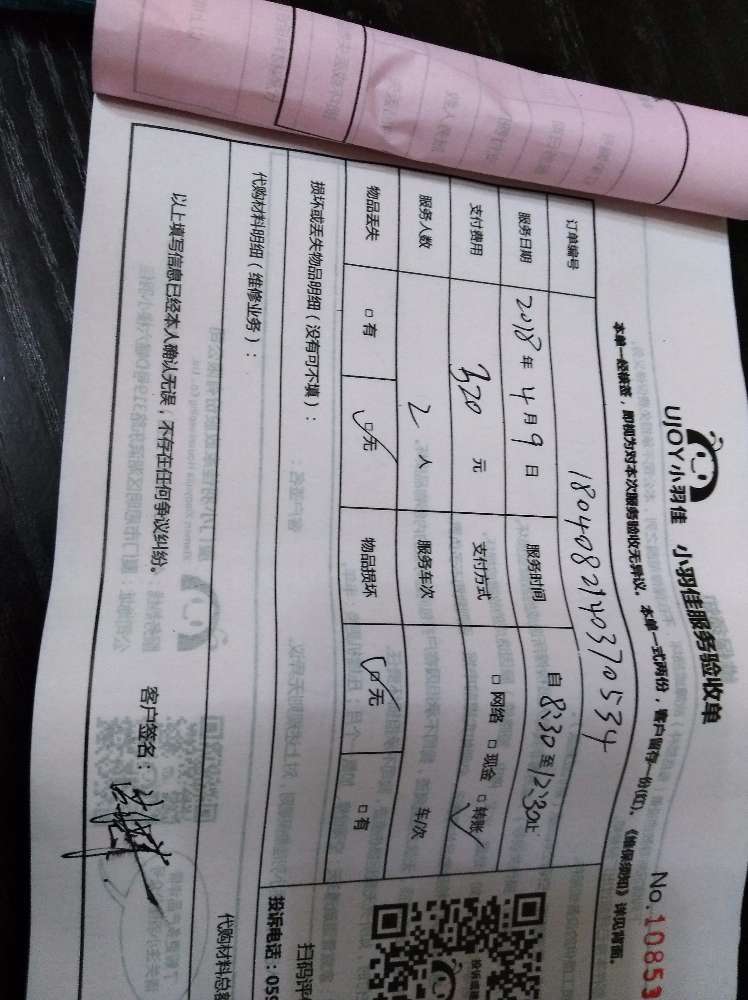 UJOY小羽佳 小羽佳服务验收单 No.10853
本单一经核签，即视为对本次服务验收无异议。 本单一式两份，客户留存一份(红)。《维保须知》详见背面。
订单编号 18040821403705534
服务日期 2018年4月9日 服务时间 自8:30至12:30止
支付费用 320元 支付方式 □网络 □现金 □转账
服务人数 2人 服务车次 车/次
物品丢失 □有 □无 物品损坏 □无 □有
损坏或丢失物品明细（没有可不填）：
扫码评
投诉电话：059
代购材料明细（维修业务）：
代购材料总额
以上填写信息已经本人确认无误；不存在任何争议纠纷。 客户签名：